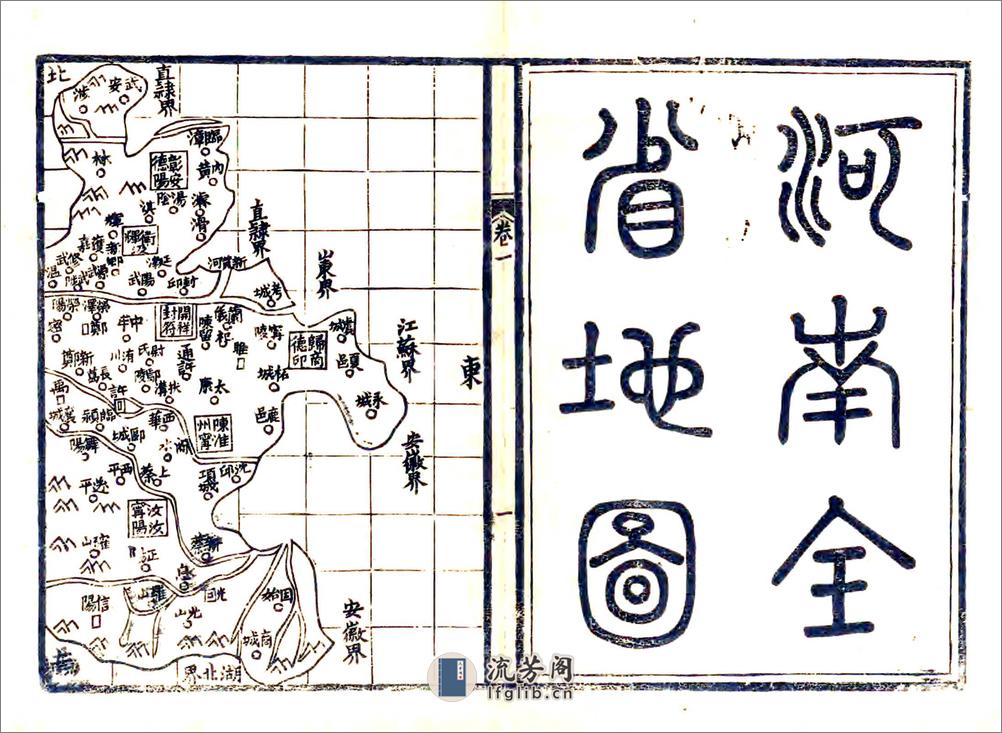 河南全
省地圖
卷一
一
東
北
直隸界
武安
涉
臨漳
內黃
林
彰德
安陽
湯陰
滑
淇
衛輝
輝
獲嘉
新鄉
延津
直隸界
修武
溫
陽武
封邱
新黃河
考城
山東界
滎陽
滎澤
鄭
中牟
開封
祥符
陳留
蘭儀
杞
睢
寧陵
歸德
商邱
虞城
夏邑
江蘇界
永城
密
新鄭
洧川
尉氏
通許
鄢陵
扶溝
太康
柘城
鹿邑
禹
長葛
許
襄城
臨潁
西華
陳州
淮寧
安徽界
舞陽
郾城
商水
沈邱
項城
西平
上蔡
遂平
汝寧
汝陽
確山
新蔡
息
信陽
羅山
光山
固始
商城
安徽界
湖北界
流芳阁
lfglib.cn